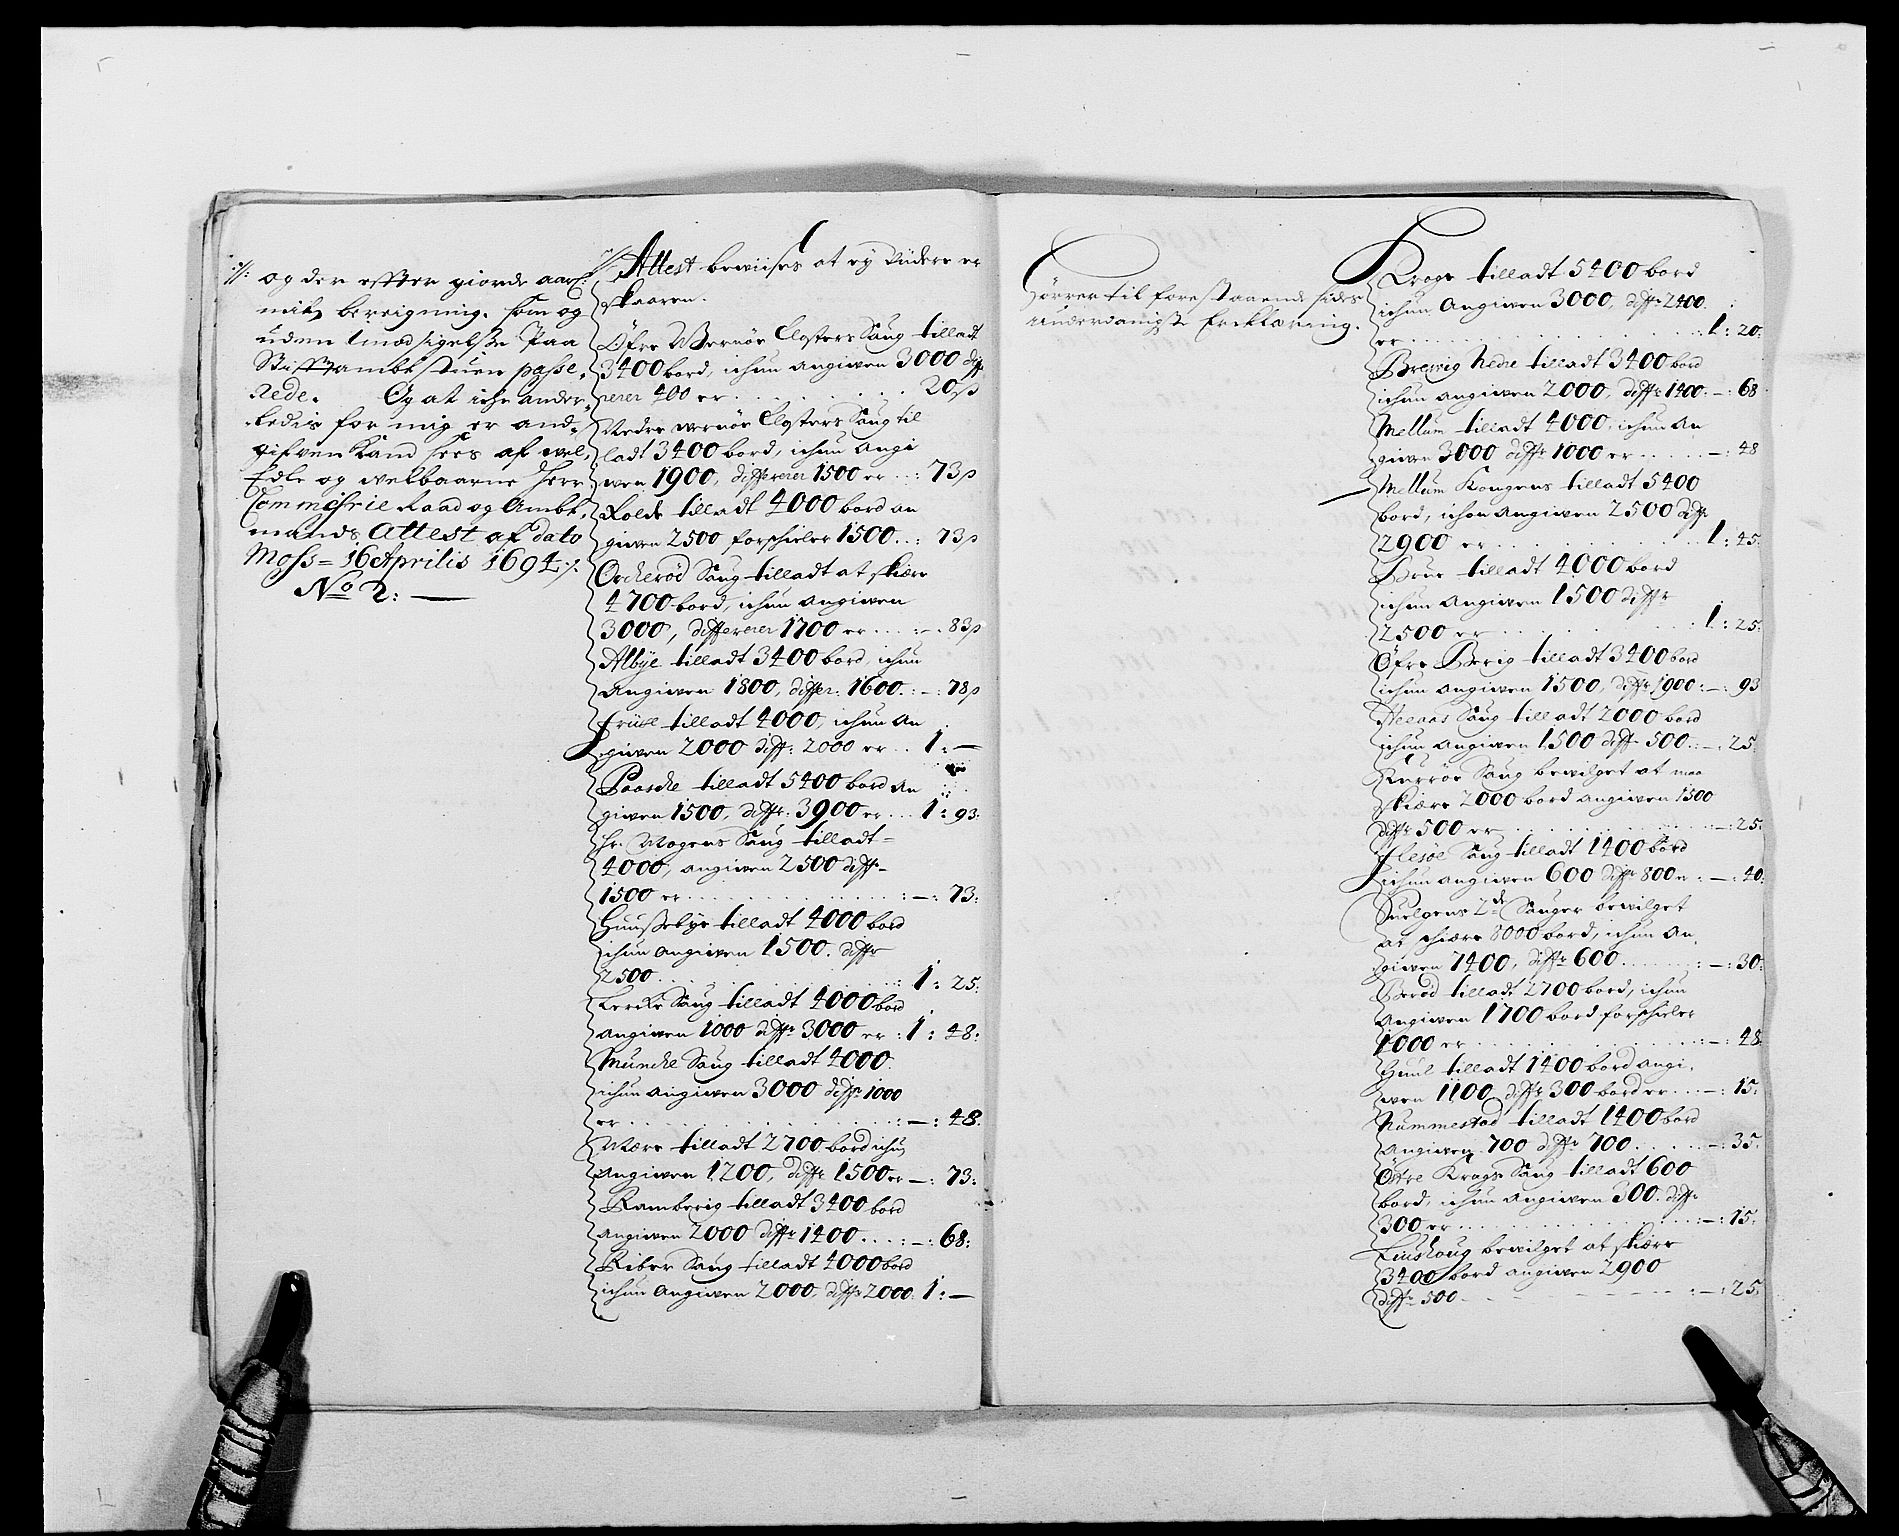 ·/: og der effter giorde aarl:
mitz bereigning. som og
uden imodsigelsse Paa
Stifftambtstuen passe,
rede. Og at iche ander„
ledis for mig er and„
gifven Kand sees af wel„
Edle og welbaarne Herr
Commisrie Raad og Ambt„
mands Attest af dato
Moss = 16 Aprilis 1694 ·/.
No 2: —
·/. Attest beviises at ey videre er
skaaren.
Öfre Wernöe Closters Saug tilladt
3400 bord, ichun angiwen 3000 diff
rerer 400 er . . . . . . 20 s
Nedre wernöe Closters Saug til
ladt 3400 bord, ichun angi
wen 1900, differerer 1500 er . . : 73 s
Rolds tilladt 4000 bord an
giwen 2500 forschieler 1500 . . : 73 s
Orcherød Saug tilladt at skiære
4700 bord, ichun angiwen
3000, differerer 1700 er . . . : — . 83 s
Albye tilladt 3400 bord, ichun
angiwen 1800, differ: 1600 . : — : 78 s
Friise tilladt 4000, ichun an
giwen 2000 diff: 2000 er . . 1 : —
Paasche tilladt 5400 bord an
giwen 1500, diffr: 3900 er . . . 1 : 93:
hr. Mogens Saug tilladt =
4000, angiwen 2500 diffr
1500 er . . . . . . . . : — : 73:
Huussebye tilladt 4000 bord
ichun angiwen 1500. diffr
2500 . . . . . . . . : 1 : 25:
Lercke Saug tilladt 4000 bord
angiwen 1000 diffr 3000 er : 1 : 48:
Munche Saug tilladt 4000
ichun angiwen 3000 diffr 1000
er . . . . . . . . : — : 48:
Wære tilladt 2700 bord ichun
angiwen 1200, diffr 1500 er — : 73:
Ramberig tilladt 3400 bord
angiwen 2000 diffr 1400 . . . : — : 68:
Riber Saug tilladt 4000 bord
ichun angiwen 2000, diffr 2000 . 1 : —
hörrer til forestaaende sides
underdanigste Ercklæring.
Krogs tilladt 5400 bord
ichun angiwen 3000, diffr 2400
er . . . . . . . . : 1 : 20:
Brewig nedre tilladt 3400 bord
ichun angiwen 2000, diffr 1400 . — : 68
Mellum tilladt 4000, ichun an
giwen 3000 diffr 1000 er . . . . — : 48
Mellum Kongens tilladt 5400
bord, ichun angiwen 2500 diffr
2900 er . . . . . . . . 1 : 45:
Brur tilladt 4000 bord
ichun angiwen 1500 diffr
2500 er . . . . . . . . : 1 : 25:
Öfre Berig tilladt 3400 bord
ichun angiwen 1500, diffr 1900 : — : 93
Saug tilladt 2000 bord
ichun angiwen 1500 diffr 500 : — : 25:
Saug bewilget at maa
skiære 2000 bord angiwen 1500
diffr 500 er . . . . . . . . : — : 25:
Flesøe Saug tilladt 1400 bord
ichun angiwen 600 diffr 800 er : — : 40:
2de Sauger bewilget
at schiære 8000 bord, ichun an„
giwen 7400, diffr 600 . . . . : — : 30:
Berød tilladt 2700 bord, ichun
angiwen 1700 bord forschieler
1000 er . . . . . . . . : — : 48
Huul tilladt 1400 bord angi„
wen 1100, diffr 300 bord er . . . — : 15:
Nummestad tilladt 1400 bord
angiwen 700 diffr 700 . . . . — : 35:
Östre Krogs Saug tilladt 600
bord, ichun angiwen 300. diffr
300 er . . . . . . . . : — : 15:
bewilget at skiære
3400 bord angiwen 2900
diffr 500 - - - - - - : — : 25: